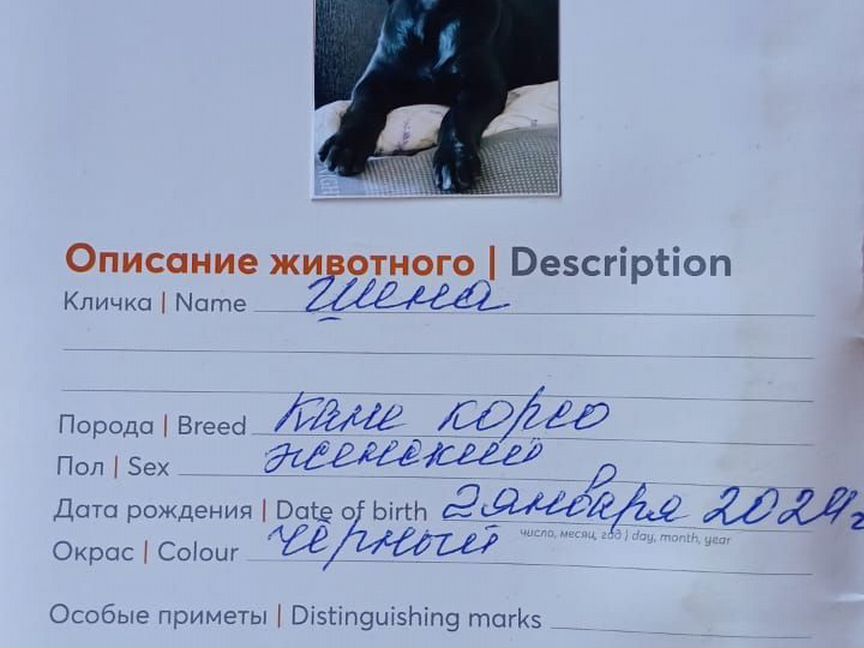 Описание животного | Description
Кличка | Name Шена
Порода | Breed Кане корсо
Пол | Sex женский
Дата рождения | Date of birth 2 января 2024г
число, месяц, год | day, month, year
Окрас | Colour чёрный
Особые приметы | Distinguishing marks